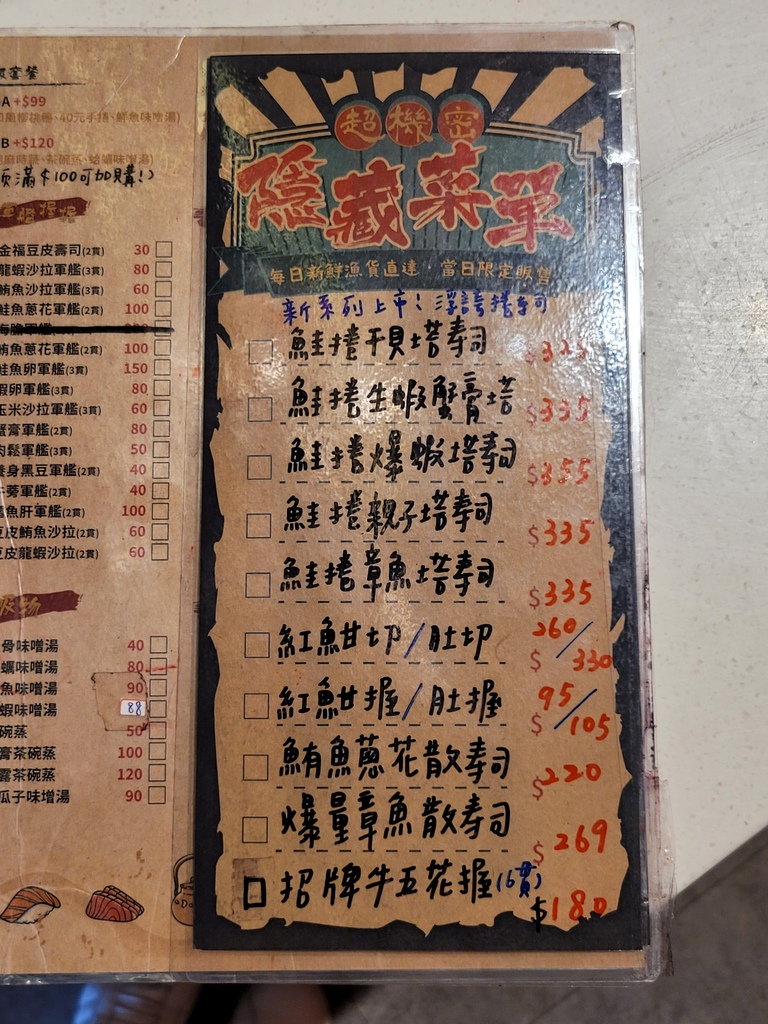 A +$99
B +$120
滿$100可加購!)
金福豆皮壽司(2貫) 30
龍蝦沙拉軍艦(3貫) 80
鮪魚沙拉軍艦(3貫) 60
鮭魚蔥花軍艦(2貫) 100
海膽軍艦
鮪魚蔥花軍艦(2貫) 100
鮭魚卵軍艦(3貫) 150
蝦卵軍艦(3貫) 80
玉米沙拉軍艦(3貫) 60
蟹膏軍艦(2貫) 80
肉鬆軍艦(2貫) 50
養身黑豆軍艦(2貫) 40
牛蒡軍艦(2貫) 40
魚肝軍艦(2貫) 100
豆皮鮪魚沙拉(2貫) 60
豆皮龍蝦沙拉(2貫) 60
骨味噌湯 40
蠣味噌湯 80
魚味噌湯 90
蝦味噌湯 88
碗蒸 50
膏茶碗蒸 100
露茶碗蒸 120
瓜子味增湯 90
超機密
隱藏菜單
每日新鮮漁貨直達·當日限定販售
新系列上市!浮誇捲壽司
鮭捲干貝塔壽司 $325
鮭捲生蝦蟹膏塔 $335
鮭捲爆蝦塔壽司 $355
鮭捲親子塔壽司 $335
鮭捲章魚塔壽司 $335
紅魽切/肚切 $260/330
紅魽握/肚握 $95/105
鮪魚蔥花散壽司 $220
爆量章魚散壽司 $269
招牌牛五花握(6貫) $180